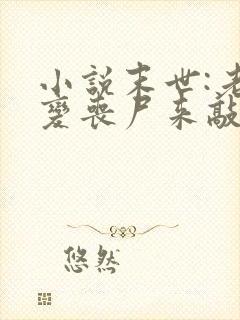 小说末世:老
变丧尸来敲
悠然